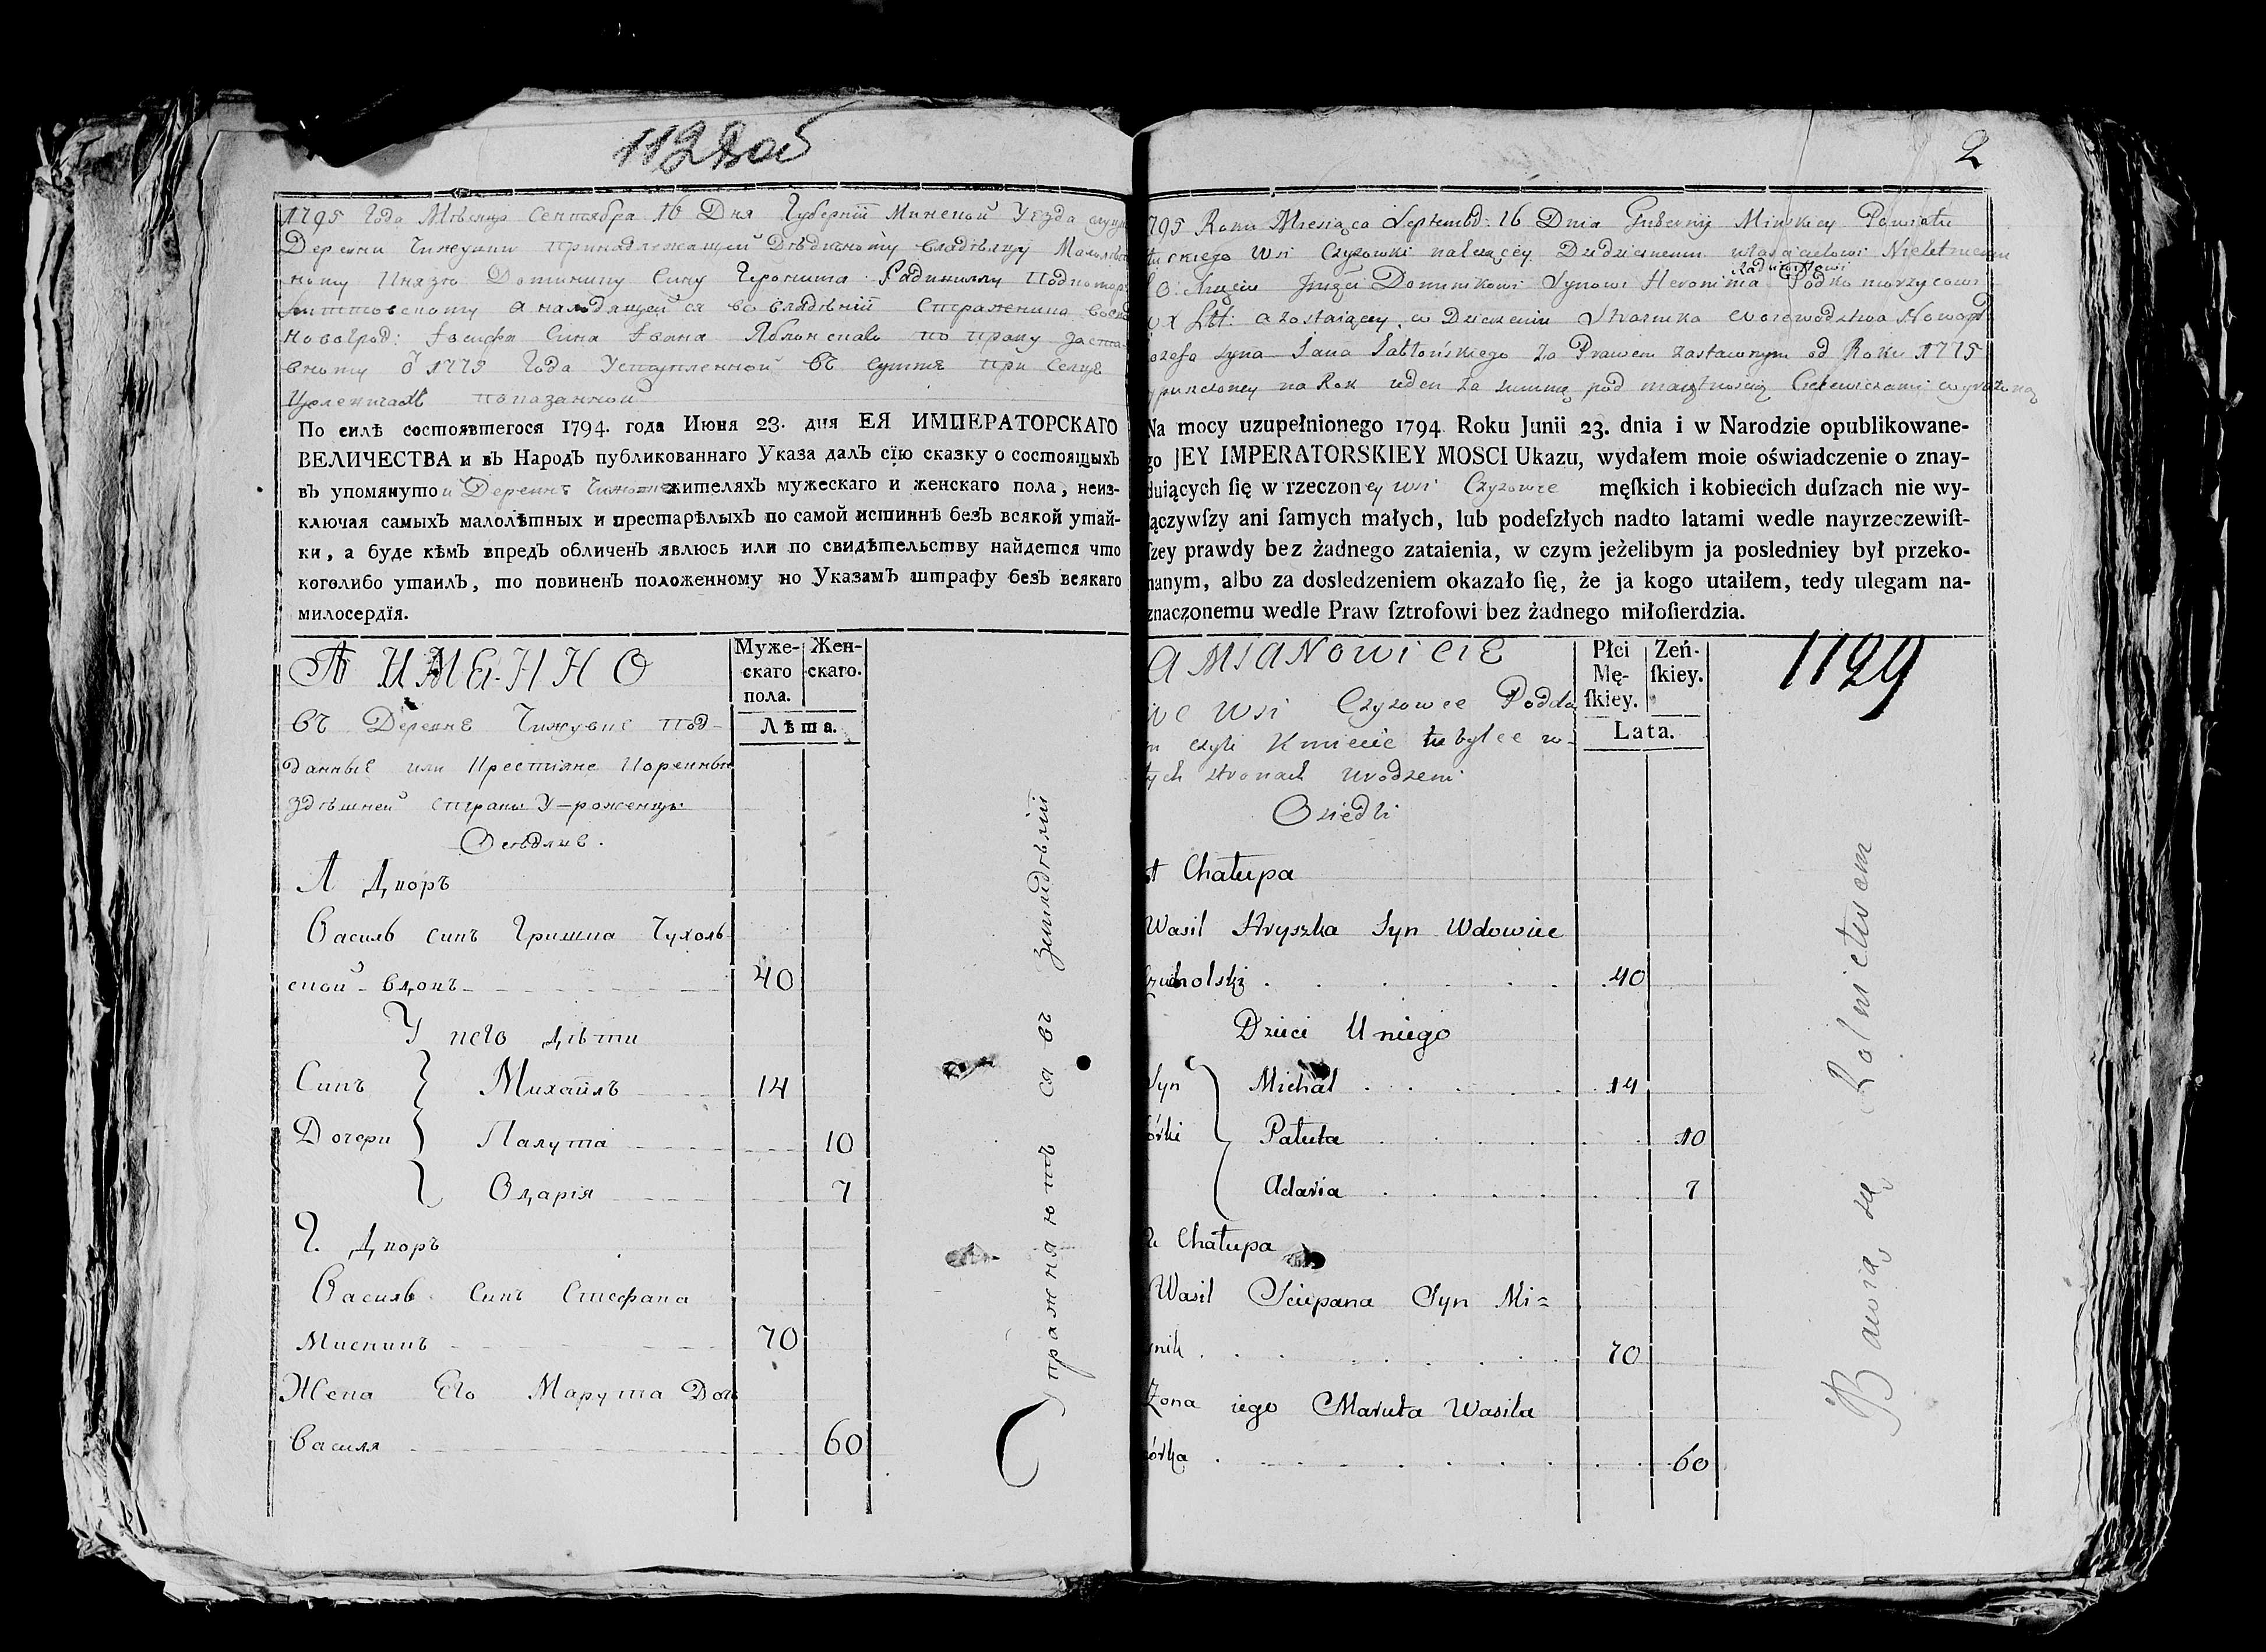 1128об
1795 Года Мѣсяца Сентября 16 Дня Губернїи Минской Уезда
Деревни Чижувки принадлежащей Дѣдичному владѣльцу
ному Князю Доминику Сину Геронима Радивиллу Подкомор
Литтовскому а находящейся во владѣнїи Стражника
Новогрод: Iосифа Сина Iвана Яблонскаго по праву Заста
вному 1775 Года Уступленной въ суммѣ при Селцѣ
показанной
По силѣ состоявшегося 1794. года Июня 23. дня ЕЯ ИМПЕРАТОРСКАГО
ВЕЛИЧЕСТВА и въ Народъ публикованнаго Указа далъ сїю сказку о состоящыхъ
въ упомянутои Деревнѣ жителяхъ мужескаго и женскаго пола, неиз-
ключая самыхъ малолѣтных и престарѣлыхъ по самой истиннѣ безъ всякой утай-
ки, а буде кѣмъ впредъ обличенъ явлюсь или по свидѣтельству найдется что
коголибо утаилъ, то повиненъ положенному по Указамъ штрафу безъ всякаго
милосердїя.
А ИМЕННО
Муже-
скаго
пола.
Жен-
скаго.
Лѣта.
въ Деревнѣ Чижувке под-
данные или Крестiяне Коренные
здѣшней страны У-роженцы
Оседлие.
А Дворъ
Василь синъ Гришка Чухоль
ской вдовъ 40
У него дѣти
Синъ Михайлъ 14
Дочери Палута 10
Одарiя 7
2. Дворъ
Василь Синъ Стефана
Мискинъ 70
Жена Его Марута Доч
Василя 60
Упражняютъ ся въ земледѣлїи
2
795 Roku Miesiąca Septembd: 16 Dnia Gubernij Minskiey Powiatu
uckiego Wsi Czyzowki nalezącey Dziedzicznemu własicielowi Nieletniemu
O: Xięciu Dominikowi Synowi Heronima Radziwiłłowi Podkomorzycowi
X Litt: a zostaiącey w Dzierzeniu Straznika Woiewodztwa Nowogr
ozefa syna Jana Jabłońskiego za Prawem zastawnym od Roku 1775
puszczoney na Rok ieden za summę pod maiętnoscią
Na mocy uzupełnionego 1794 Roku Junii 23. dnia i w Narodzie opublikowane-
go JEY IMPERATORSKIEY MOSCI Ukazu, wydałem moie oświadczenie o znay-
duiących ſię w rzeczoney wsi Czyzowce męſkich i kobiecich duſzach nie wy-
ączywſzy ani ſamych małych, lub podeſzłych nadto latami wedle nayrzeczewiſt-
ſzey prawdy bez żadnego zataienia, w czym jeżelibym ja posledniey był przeko-
nanym, albo za dosledzeniem okazało ſię, że ja kogo utaiłem, tedy ulegam na-
znaczonemu wedle Praw ſztrofowi bez żadnego miłoſierdzia.
AMIANOWICIE
Płci
Mę-
ſkiey.
Zeń-
ſkiey.
Lata.
1129
we wsi Czyzowce Podda
n czyli Kmiecie tubylce w
tych stronach urodzeni
Osiedli
A Chałupa
Wasil Hryszka Syn Wdowiec
Czucholski 40
Dzieci U niego
Syn Michał 14
órki Pałuta 10
Adaria 7
2 Chałupa
Wasil Sciepana Syn Mi=
ynik 70
Zona iego Maruta Wasila
órka 60
Bawią się Rolnictwem